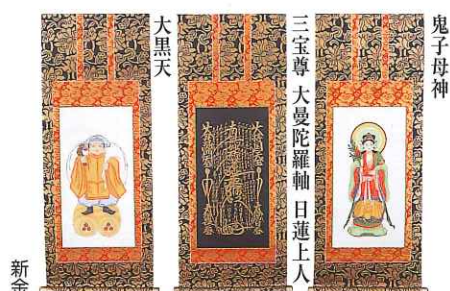 鬼子母神
三宝尊 大曼陀羅軸 日蓮上人
大黒天
新金